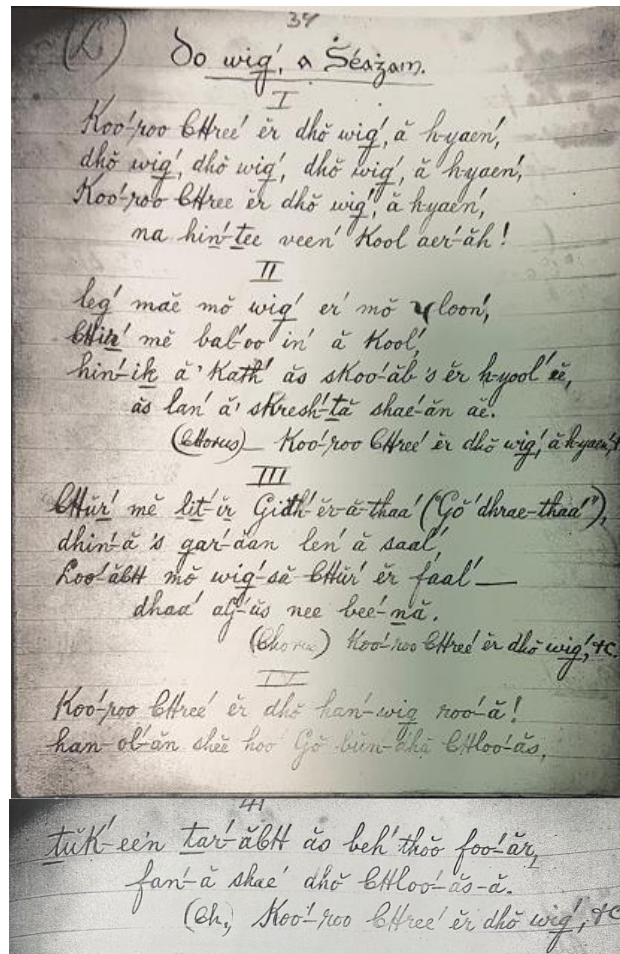 37
Do wig', a Šéaġam.
I
Koo'-roo CHree' ĕr dhŏ wig', ă h-yaen',
dhŏ wig', dhŏ wig', dhŏ wig', ă h-yaen',
Koo'-roo CHree ĕr dhŏ wig', ă h-yaen',
na hin'-tee veen' Kool aer'-ăh!
II
leg' măe mŏ wig' er' mŏ loon',
CHir' mĕ bal'-oo in' ă Kool',
hin'-ik ă' Kath' ăs skoo'-ăb 's ĕr h-yool' ĕă,
ăs lan' ă' skresh'-tă shae'-ăn ăe.
(Chorus) — Koo'-roo CHree' ĕr dhŏ wig', ă h-yaen',
III
CHŭr' mĕ lit'-ir Gidh'-ĕr-ă-thaa' ("Gŏ' dhrae-thaa'"),
dhin'-ă 's gar'-dăan len' ă saal',
Loo'-ăCH mŏ wig'-să CHŭr' ĕr faal' —
dhaa' aG'-ŭs nee bee'-nă.
(Chorus) Koo'-roo CHree' ĕr dhŏ wig', &c.
IV
Koo'-roo CHree' ĕr dhŏ han'-wig roo'-ă!
han-ol'-ăn shĕe hoo' Gŏ bŭn'-ăhă CHloo'-ăs,
41
tŭK'-een tar'-ăCH ăs beh' thŏo foo'-ăr,
fan'-ă shae' dhŏ CHloo'-ăs-ă.
(Ch.) Koo'-roo CHree' ĕr dhŏ wig', &c